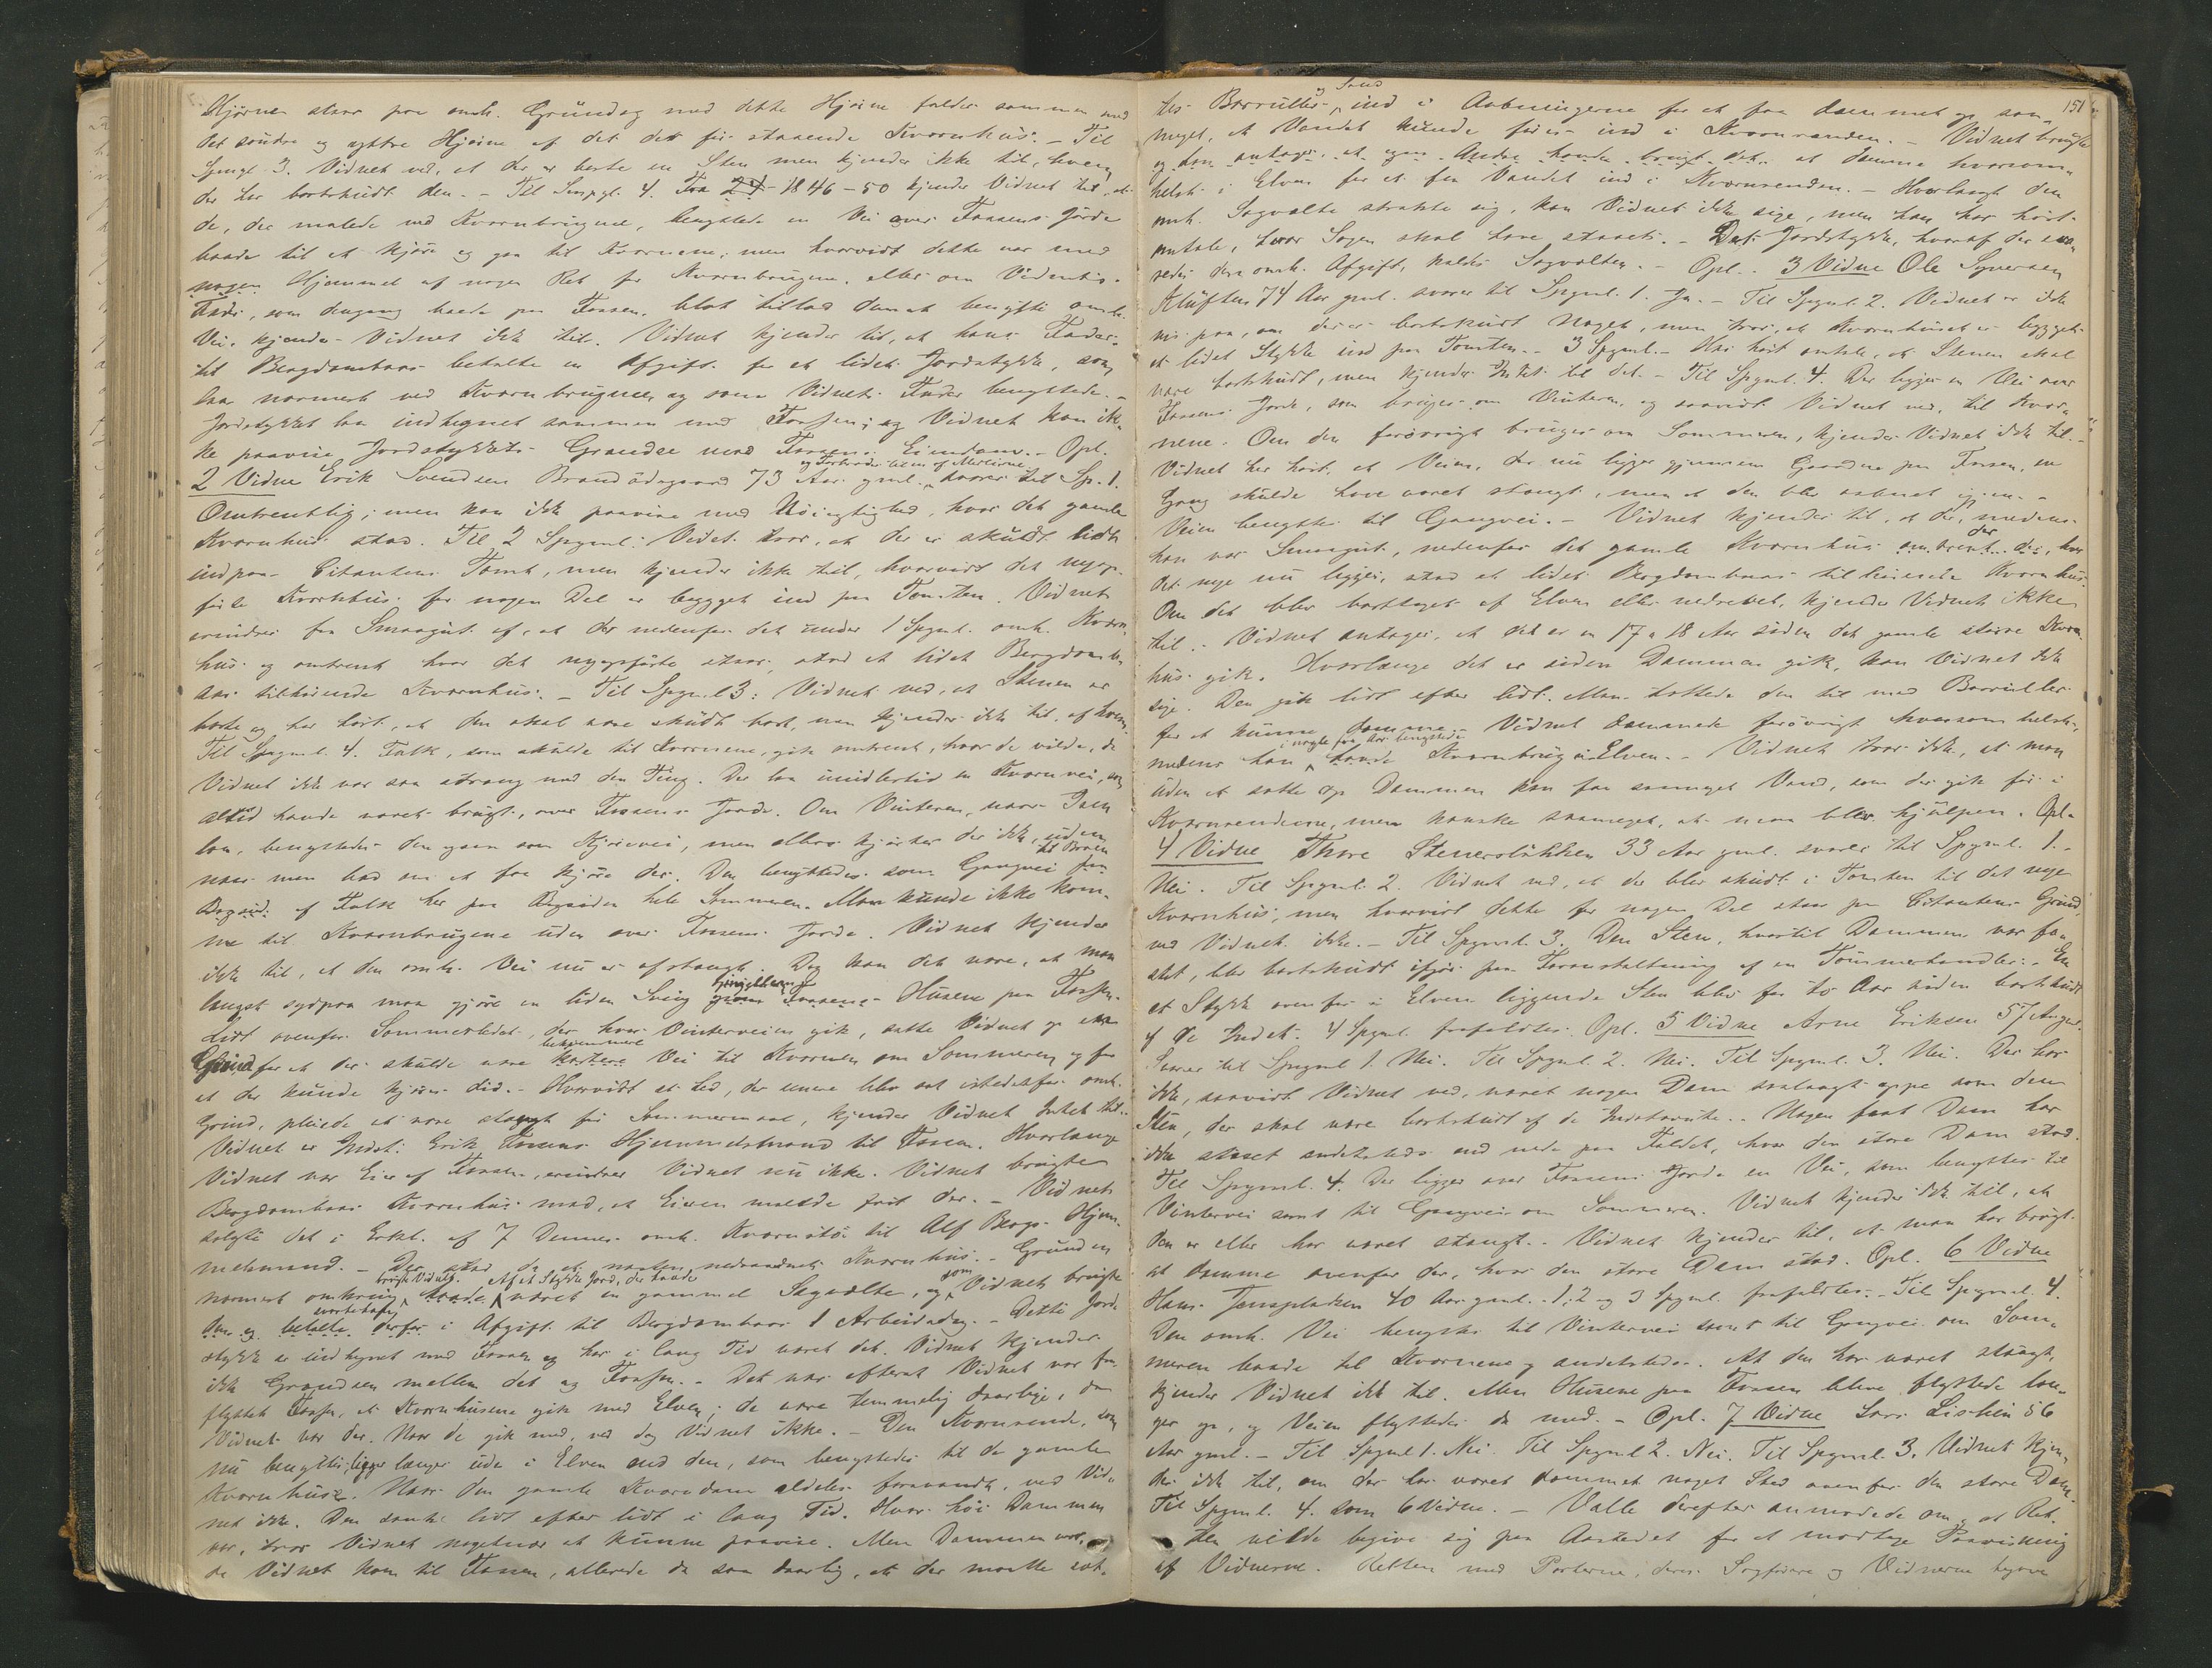 Hjørner staar paa omh. Grundeg med dette Hjørne falder sammen med
det søndre og ydre Hjørne af det der før staaende Kvernhus. – Til
Spmgl 3. Vidnet ved, at der er borte en Sten men kjender ikke til, hvem
der har bortskudt den. – Til Spmgl. 4. Fra 1846–50 kjender Vidnet til, at
de, der malede ved Kvernbrugene, benyttede en Vei over Fossens Jorde
baade til at kjøre og gaa til Kvernene, men hvorvidt dette var med
nogen Hjemmel af nogen Ret for Kvernbrugene, eller om Vidnets
Fader, som dengang boede paa Fossen, blot tillod dem at benytte omh.
Vei, kjender Vidnet ikke til. Vidnet kjender til, at hans Fader
til Bergdambaas betalte en Afgift for et lidet Jordstykke, som
laa nærmest ved Kvernbrugene og som Vidnets Fader benyttede. –
Jordstykket laa indhegnet sammen med Fossen, og Vidnet kan ik-
ke paavise Jordstykkets Grændse med Fossens Eiendom. – Opl.
2 Vidne Erik Svendsen Brandødegaard 73 Aar gml. svarer til Sp. 1.
Omtrentlig; men kan ikke paavise med Nøiagtighed, hvor det gamle
Kvernhus stod. Til 2 Spgml: Vidnet tror, at der er skudt lidt
indpaa Citantens Tomt, men kjender ikke til, hvorvidt det nyop-
førte Kvernhus for nogen Del er bygget ind paa Tomten. Vidnet
erindrer fra Smaagut af, at der nedenfor det under 1 Spgml. omh. Kvern-
hus og omtrent hvor det nyopførte staar, stod et lidet Bergdamb-
aas tilhørende Kvernhus. – Til Spgml 3: Vidnet ved, at Stenen er
borte og har hørt, at den skal være skudt bort, men kjender ikke til, af hvem.
Til Spgml. 4. Folk, som skulde til Kvernene, gik omtrent, hvor de vilde, da
Vidnet ikke var saa streng med den Ting. Der laa imidlertid en Kvernvei, som
altid havde været brugt, over Fossens Jorde. Om Vinteren, naar Isen
laa, benyttedes den ogsaa som Kjørevei, men ellers kjørtes der ikke, uden
naar man bad om at faa kjøre der. Den benyttedes som Gangvei
af Folk her paa Bygden hele Sommeren. Man kunde ikke kom-
me til Kvernbrugene uden over Fossens Jorde. Vidnet kjender
ikke til, at den omh. Vei nu er afstængt. Dog kan det være, at man
længst sydpaa maa gjøre en liden Sving Husene paa Fossen.
Lidt ovenfor Sommerledet, der hvor Vinterveien gik, satte Vidnet op en
Grind for at der skulde være bekvemmere Vei til Kvernen om Sommeren og for
at der kunde kjøres did. – Hvorvidt et Led, der senere blev sat istedetfor omh.
Grind, pleiede at være stængt før Sommermaal, kjender Vidnet Intet til. –
Vidnet er Indst. Erik Fossens Hjemmelsmand til Fossen. Hvorlænge
Vidnet var Eier af Fossen, erindrer Vidnet nu ikke. Vidnet brugte
Bergdambaas Kvernhus mod, at Eieren malede frit der. – Vidnet
solgte det i Erkl. af 7 Dennes omh. Kvernstø til Alf Bergs Hjem-
melsmand. – Der stod da et næsten nedraadnet Kvernhus. – Grunden
nærmest omkring brugte Vidnet. Af et Stykke Jord, der havde været en gammel Sagvolte, og som Vidnet brugte
betalte derfor i Afgift til Bergdambaas 1 Arbeidsdag. – Dette Jord-
stykke er indhegnet med Fossen og har i lang Tid været det. Vidnet kjender
ikke Grændsen mellem det og Fossen. – Det var efterat Vidnet var fra-
flyttet Fossen, at Kvernhusene gik med Elven; de vare temmelig daarlige, da
Vidnet var der. Naar de gik med, ved dog Vidnet ikke. – Den Kvernrende, som
nu benyttes, ligger længer ude i Elven end den, som benyttedes til de gamle
Kvernhuse. Naar den gamle Kverndam aldeles forsvandt, ved Vid-
net ikke. Den sank lidt efter lidt i lang Tid. Hvor høi Dammen
var, tror Vidnet nogetnær at kunne paavise. Men Dammen var,
da Vidnet kom til Fossen, allerede da saa daarlig, at der maatte sæt-
151
tes Barrutler og Sand ind i Aabningerne for at faa dæmmet op saa-
meget, at Vandet kunde føres ind i Kvernrenden. – Vidnet brugte
og han antager, at ogsaa Andre havde brugt det, at dæmme hvorsom-
helst i Elven for at faa Vandet ind i Kvernrenden. – Hvorlangt den
omh. Sagvolte strakte sig, kan Vidnet ikke sige, men han har hørt
omtale, hvor Sagen skal have staaet. – Det Jordstykke, hvoraf der sva-
redes den omh. Afgift, kaldes Sagvolten. – Opl. 3 Vidne Ole Syversen
Kluften 74 Aar gml. svarer til Spgml. 1. Ja. – Til Spgml. 2. Vidnet er ikke
vis paa, om der er bortskudt Noget, men tror, at Kvernhuset er bygget
et lidet Stykke ind paa Tomten. – 3 Spgml. – Har hørt omtale, at Stenen skal
være bortskudt, men kjender Intet til det. – Til Spgml. 4. Der ligger en Vei over
Fossens Jorde, som bruges om Vinteren, og saavidt Vidnet ved, til Kver-
nene. Om den forøvrigt bruges om Sommeren, kjender Vidnet ikke til. –
Vidnet har hørt, at Veien, der nu ligger gjennem Gaarden paa Fossen, en
Gang skulde have været stængt, men at den blev aabnet igjen. –
Veien benyttes til Gangvei. – Vidnet kjender til, at der, medens
han var Smaagut, nedenfor det gamle Kvernhus omtrent der, hvor
det nye nu ligger, stod et lidet Bergdambaas tilhørende Kvernhus.
Om det blev borttaget af Elven eller nedrevet, kjender Vidnet ikke
til. – Vidnet antager, at det er en 17 a 18 Aar siden det gamle større Kvern-
hus gik. Hvorlænge det er siden Dammen gik, kan Vidnet ikke
sige. Den gik lidt efter lidt. Man tættede den til med Barrutler
for at kunne dæmme. Vidnet dæmmede forøvrigt hvorsomhelst,
medens han i nogle faa Aar benyttede Kvernbrug i Elven. – Vidnet tror ikke, at man
uden at sætte op Dammen kan faa saameget Vand, som der gik før i
Kvernrenderne, men kanske saameget, at man blev hjulpen. Opl.
4 Vidne Thore Stenersløkken 33 Aar gml. svarer til Spgml. 1. –
Nei. Til Spgml. 2. Vidnet ved, at der blev skudt i Tomten til det nye
Kvernhus, men hvorvidt dette for nogen Del staar paa Citantens Grund,
ved Vidnet ikke. – Til Spgml. 3. Den Sten, hvortil Dammen var fæ-
stet, blev bortskudt ifjor paa Foranstaltning af en Tømmerhandler. – En
et Stykke ovenfor i Elven liggende Sten blev for to Aar siden bortskudt
af de Indst. 4 Spgml. frafaldtes. Opl. 5 Vidne Arne Eriksen 57 Aar gml.
Svarer til Spgml 1. Nei. Til Spgml. 2. Nei. Til Spgml. 3. Nei. Der har
ikke, saavidt Vidnet ved, været nogen Dam saalangt oppe som den
Sten, der skal være bortskudt af de Indstævnte. – Nogen fast Dam har
ikke staaet andetsteds end nede paa Faldet, hvor den store Dam stod.
Til Spgml. 4. Der ligger over Fossens Jorde en Vei, som benyttes til
Vintervei samt til Gangvei om Sommeren. Vidnet kjender ikke til, at
den er eller har været stængt. – Vidnet kjender til, at man har brugt
at dæmme ovenfor der, hvor den store Dam stod. Opl. 6 Vidne
Hans Fossepladsen 40 Aar gml. – 1, 2 og 3 Spgml. frafaldtes. – Til Spgml. 4.
Den omh. Vei benyttes til Vintervei samt til Gangvei om Som-
meren baade til Kvernene og andetsteds. At den har været stængt,
kjender Vidnet ikke til. Men Husene paa Fossen bleve flyttede læn-
ger op, og Veien flyttedes da med. – Opl. 7 Vidne Lars Lislien 56
Aar gml. – Til Spgml 1. Nei. Til Spgml 2. Nei. Til Spgml. 3. Vidnet kjen-
der ikke til, om der har været dæmmet noget Sted ovenfor den store Dam.
Til Spgml. 4. som 6 Vidne. – Valle derefter anmodede om, at Ret-
ten vilde begive sig paa Aastedet for at modtage Paavisning
af Vidnerne. Retten med Parterne, deres Sagførere og Vidnerne begave